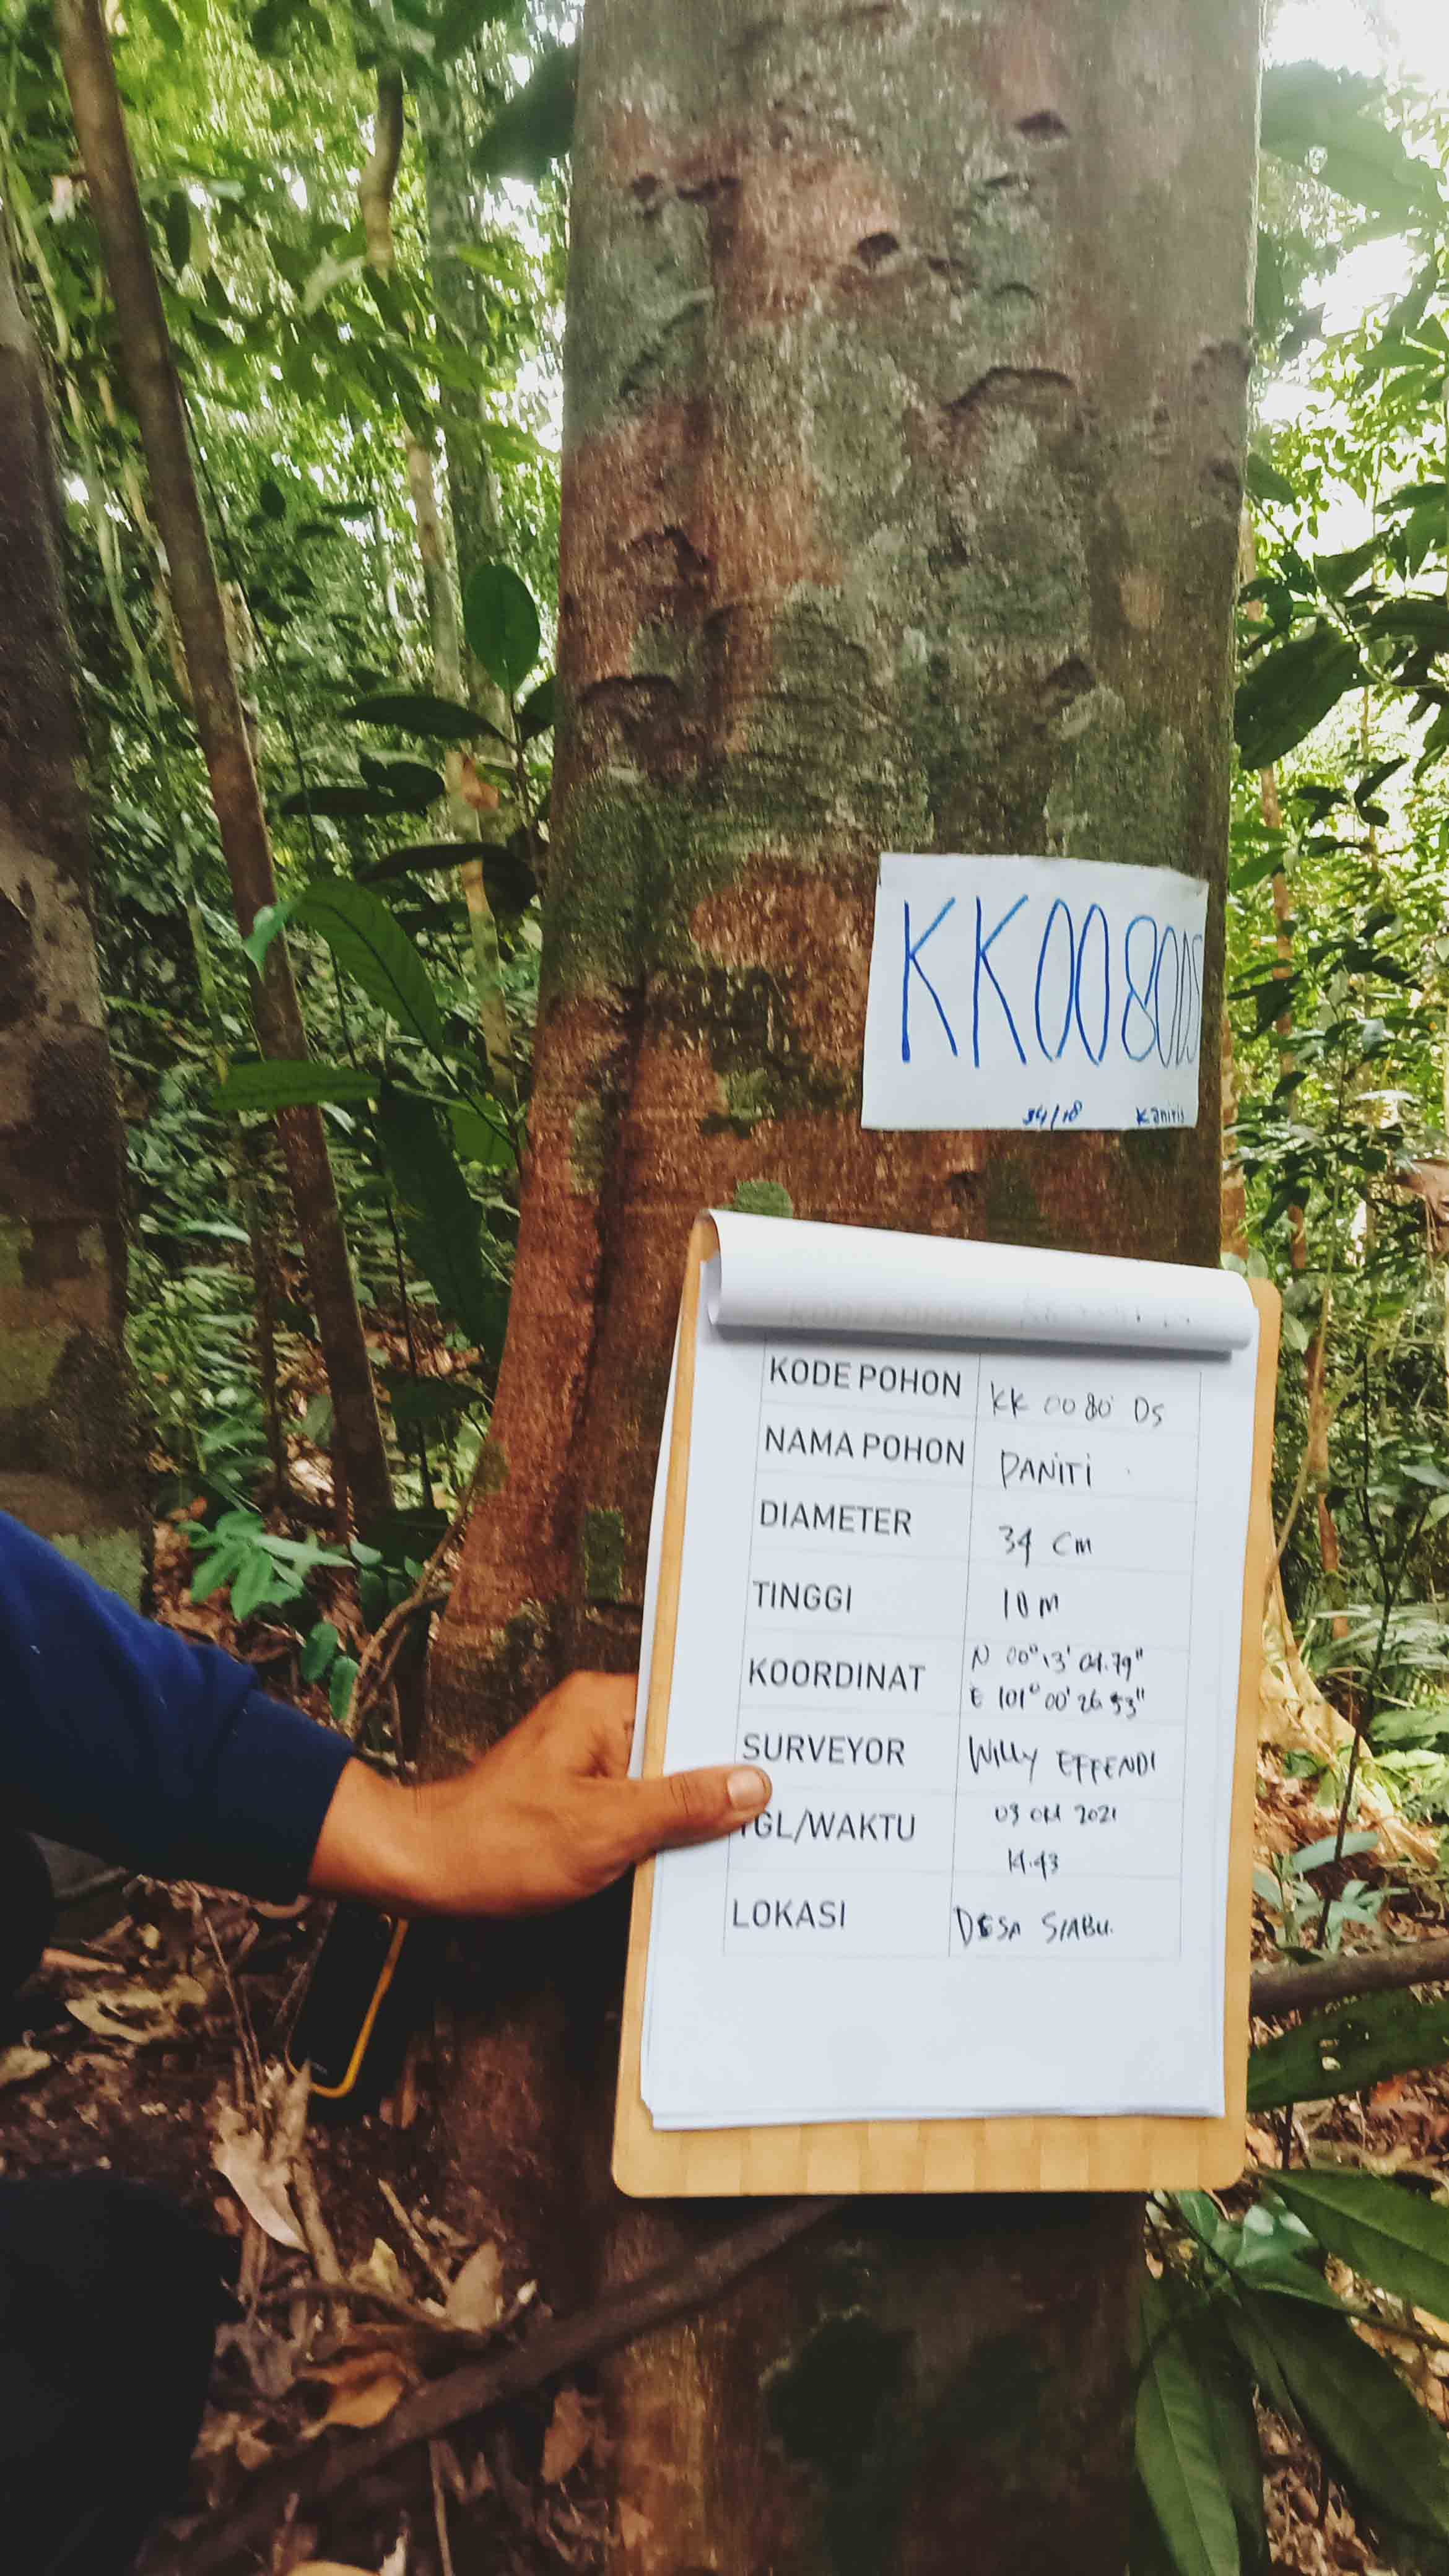 KK0080DS
34/18 Kaniti
KODE POHON KK 0080 DS
NAMA POHON PANITI
DIAMETER 34 cm
TINGGI 10 m
KOORDINAT N 00° 13' 04.79"
E 101° 00' 26.53"
SURVEYOR Willy EFFENDI
TGL/WAKTU 03 Okt 2021
14.43
LOKASI DESA SIABU.